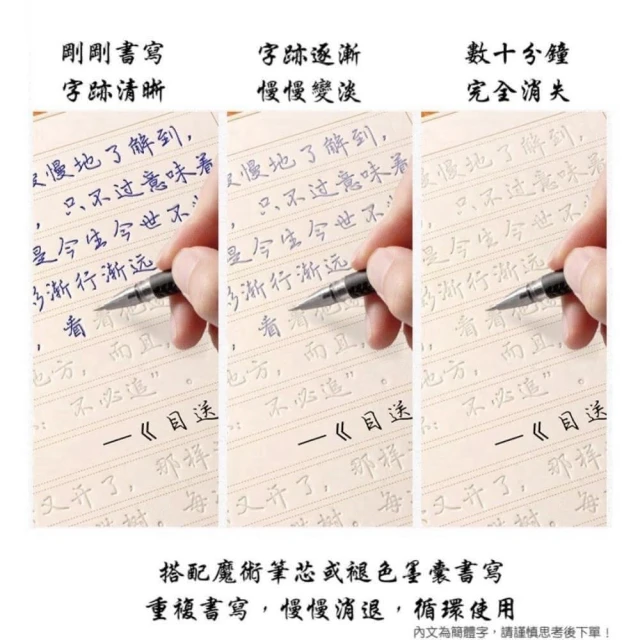 剛剛書寫
字跡清晰
字跡逐漸
慢慢變淡
數十分鐘
完全消失
慢慢地了解到，
，只不过意味着
是今生今世不
渐行渐远
，看着他
地方，而且，
：不必追”。
—《目送
那样
又开了，
树。每
慢慢地了解到，
，只不过意味着
是今生今世不
渐行渐远
，看着他
地方，而且，
：不必追”。
—《目送
那样
又开了，
树。每
慢慢地了解到，
，只不过意味着
是今生今世不
渐行渐远
，看着他
地方，而且，
：不必追”。
—《目送
那样
又开了，
树。每
搭配魔術筆芯或褪色墨囊書寫
重複書寫，慢慢消退，循環使用
內文為簡體字，請謹慎思考後下單！